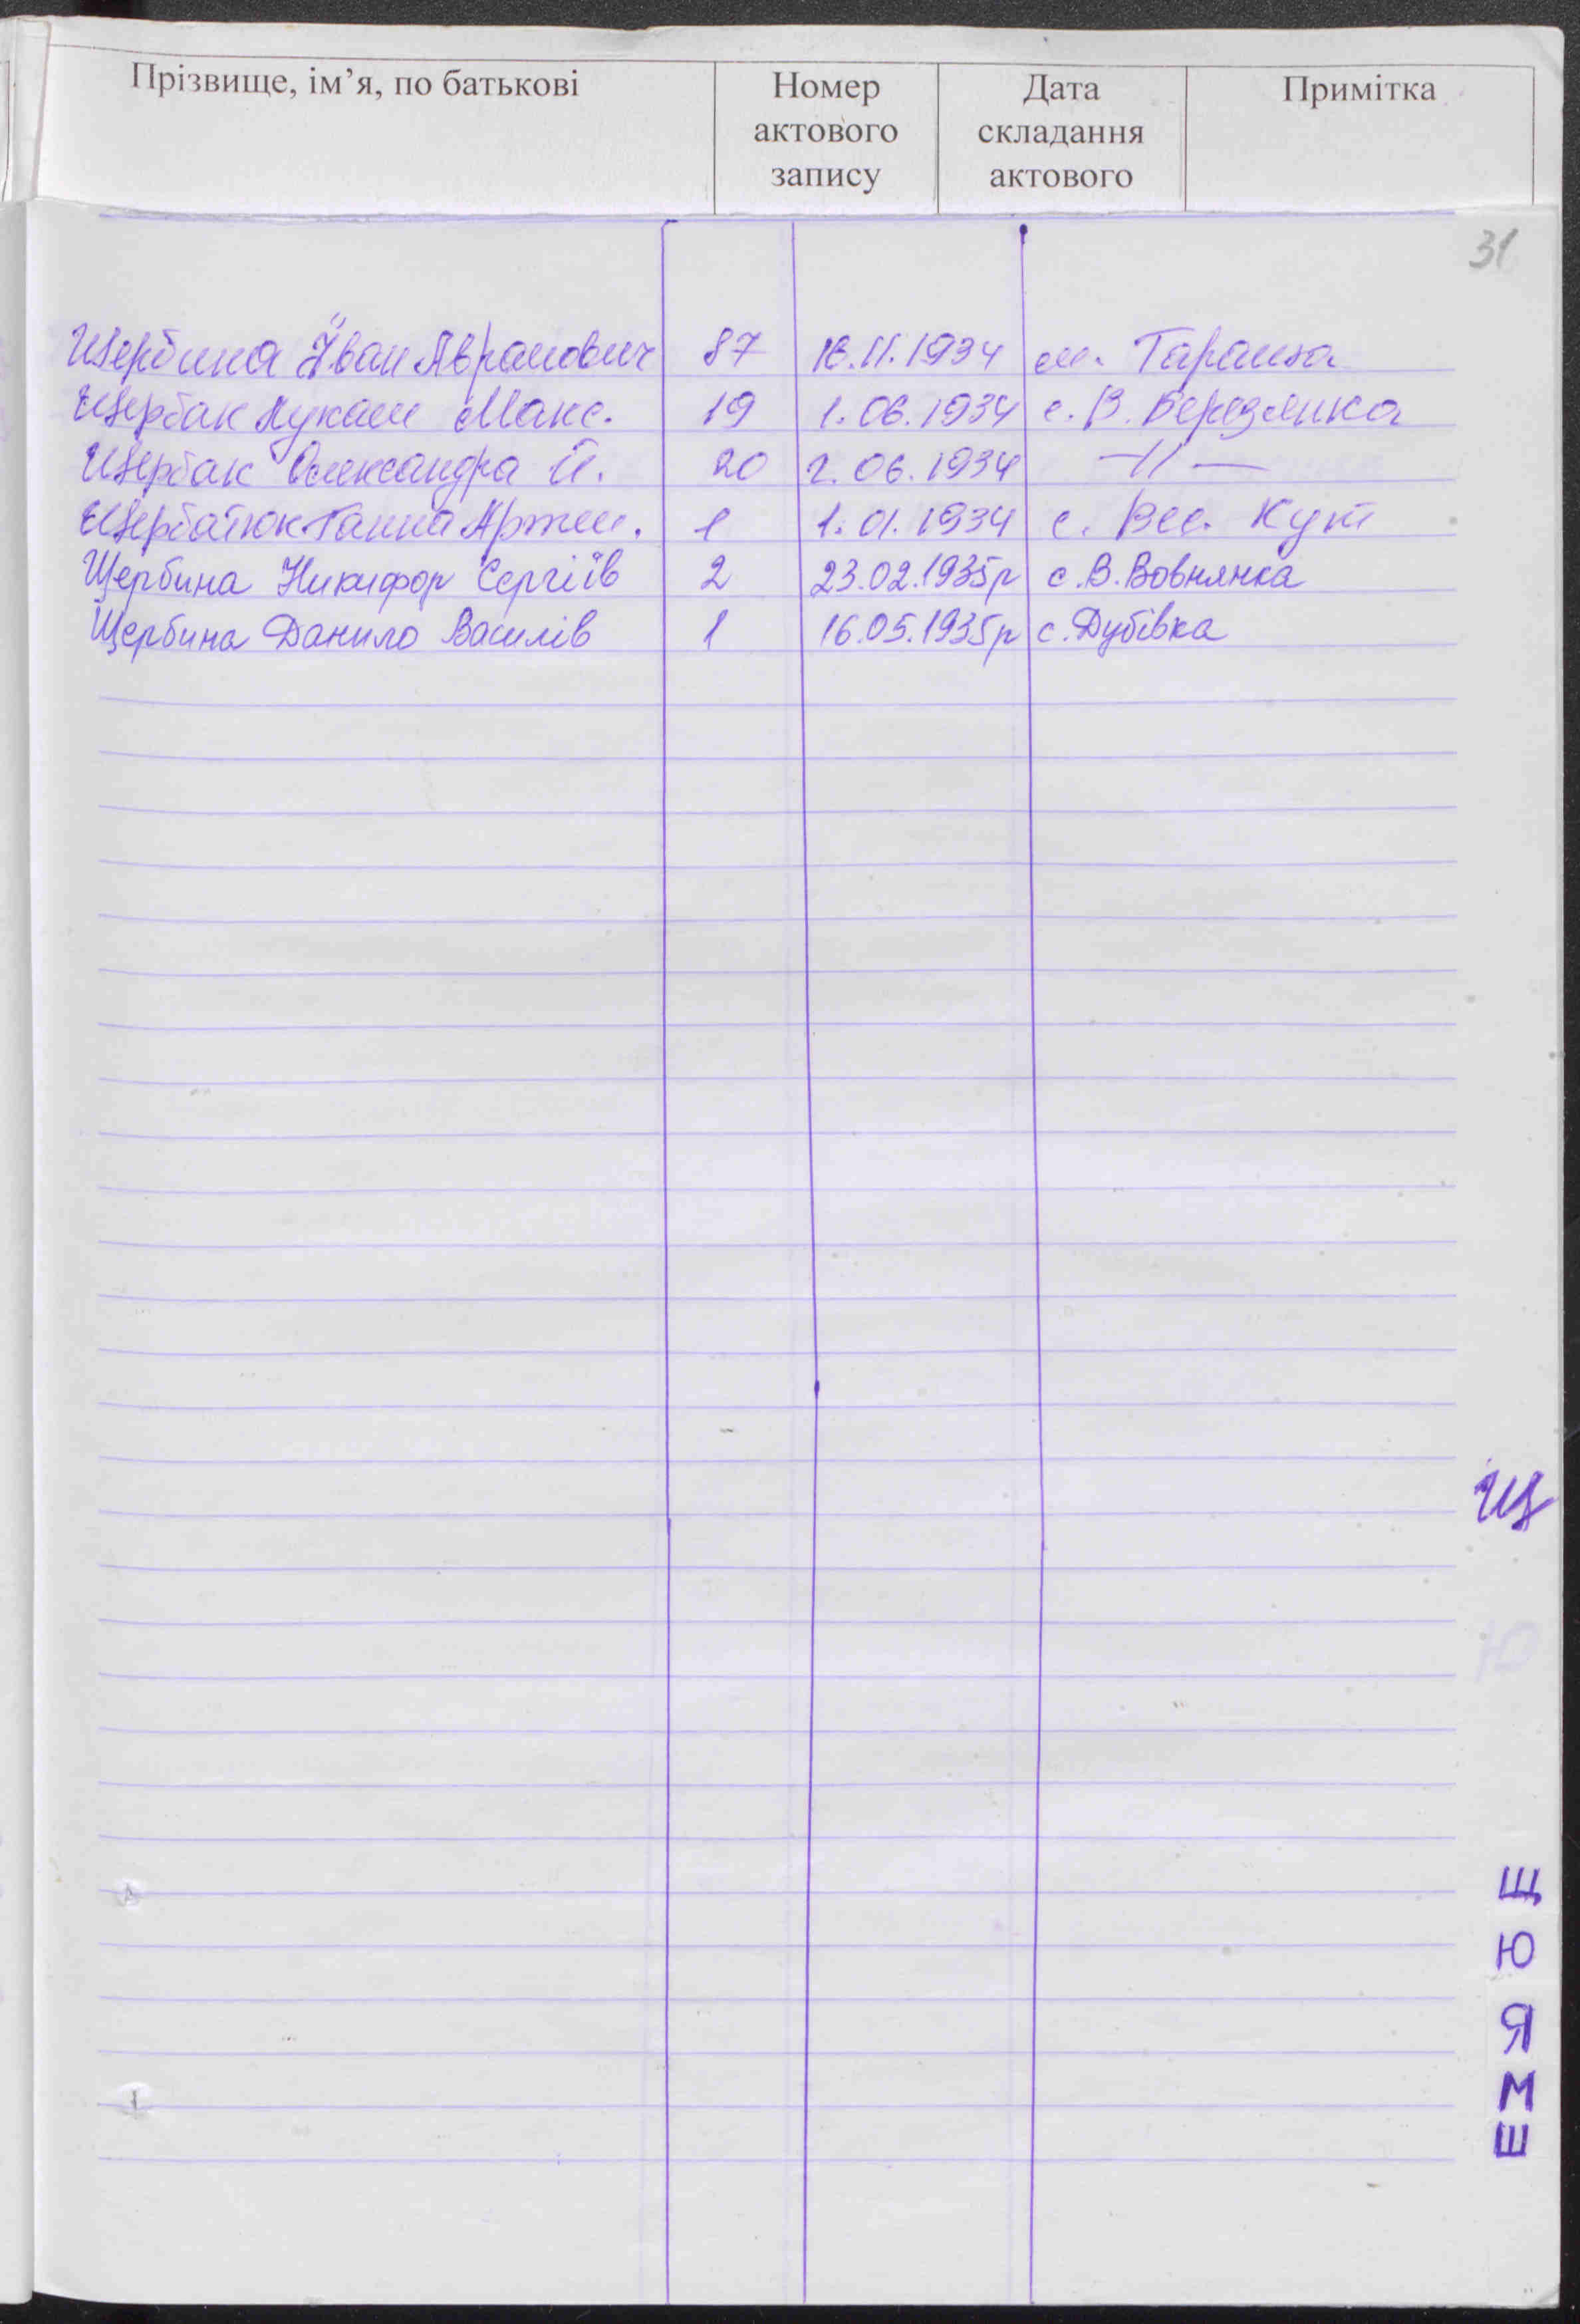 Прізвище, ім’я, по батькові Номер актового запису Дата складання актового Примітка
31
Щербина Іван Аврамович 87 16.11.1934 м. Тараща
Щербак Лукаш Макс. 19 1.06.1934 с. В. Березянка
Щербак Олександра Й. 20 2.06.1934 —||—
Щербатюк Ганна Артем. 1 1.01.1934 с. Вес. Кут
Щербина Никифор Сергіїв 2 23.02.1935р с. В. Вовнянка
Щербина Данило Василів 1 16.05.1935р с. Дубівка
Щ
Ю
Щ
Ю
Я
М
Ш